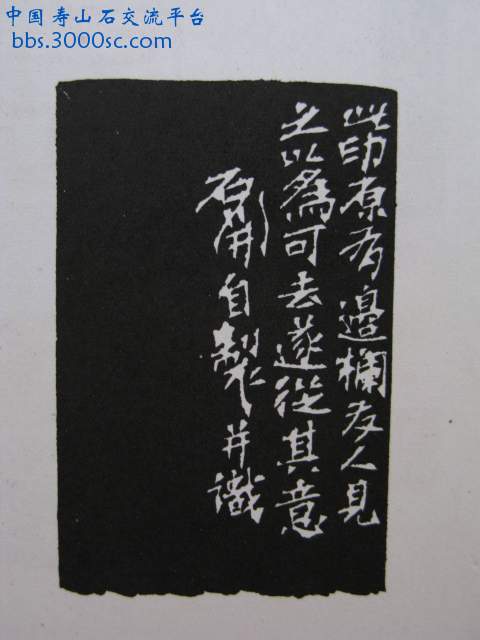 中国寿山石交流平台
bbs.3000sc.com
此印原有邊欄友人見
之以為可去遂從其意
石開自製并識